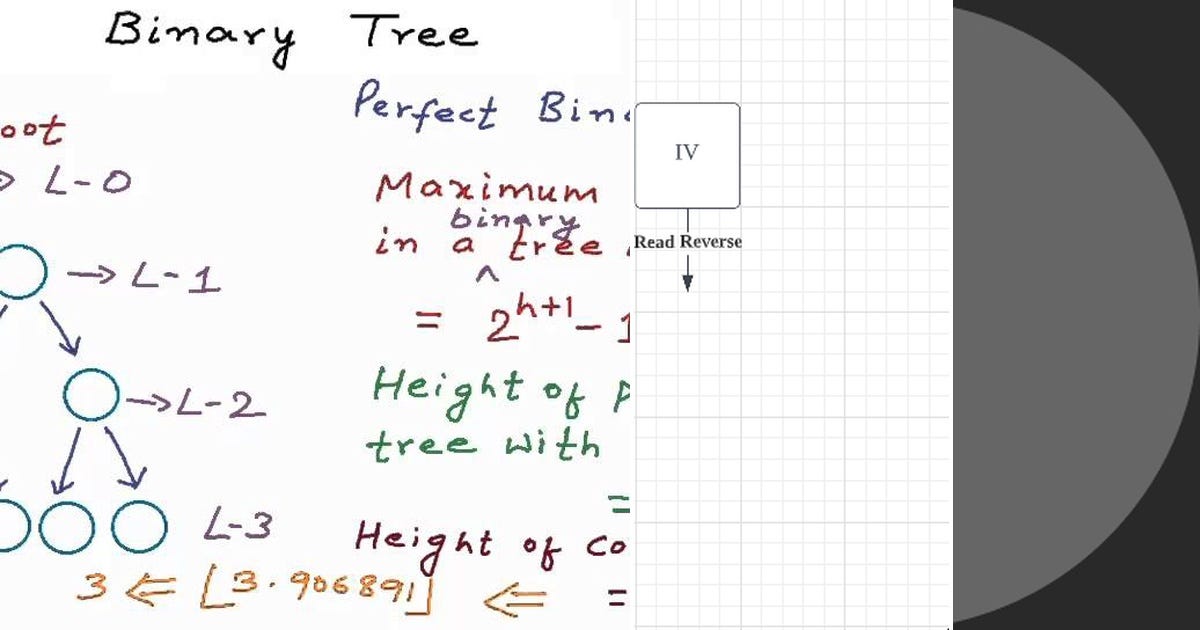 Binary Tree
Perfect
oot
L-0
Maximum
binary
in a tree
^
L-1
= 2^h+1 - 1
Height of
L-2
tree with
=
L-3
Height of co
3 ⇐ ⌊3.906891⌋ ⇐ =
IV
Read Reverse